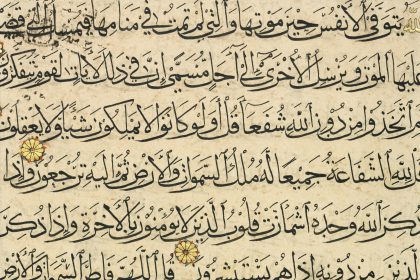 الله يتوفى الأنفس حين موتها والتي لم تمت في منامها فيمسك التي قضى
عليها الموت ويرسل الأخرى إلى أجل مسمى إن في ذلك لآيات لقوم يتفكرون
أم اتخذوا من دون الله شفعاء قل أولو كانوا لا يملكون شيئا ولا يعقلون
قل لله الشفاعة جميعا له ملك السموات والأرض ثم إليه ترجعون وإذا
ذكر الله وحده اشمأزت قلوب الذين لا يؤمنون بالآخرة وإذا ذكر
الذين من دونه إذا هم يستبشرون قل اللهم فاطر السموات والأرض